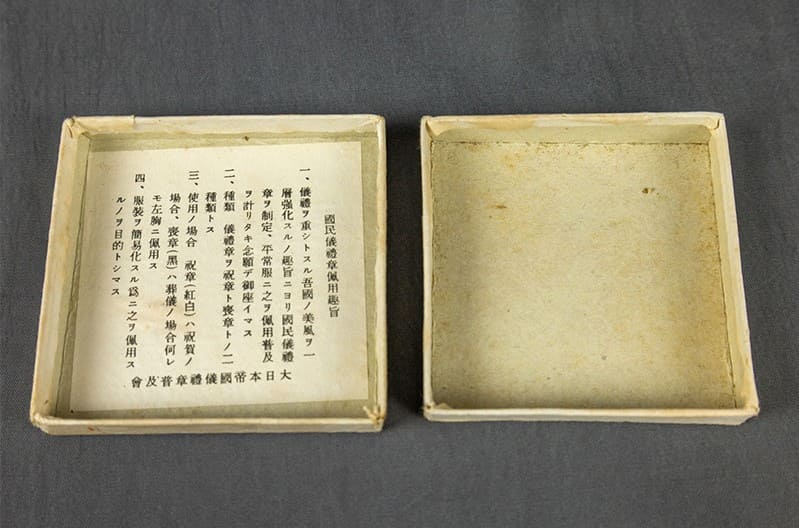 國民儀禮章佩用趣旨
一、儀禮ヲ重シトスル吾國ノ美風ヲ一
層强化スルノ趣旨ニヨリ國民儀禮
章ヲ制定、平常服ニ之ヲ佩用普及
ヲ計リタキ念願デ御座イマス
二、種類　儀禮章ヲ祝章ト喪章トノ二
種類トス
三、使用ノ場合　祝章(紅白)ハ祝賀ノ
場合、喪章(黑)ハ葬儀ノ場合何レ
モ左胸ニ佩用ス
四、服裝ヲ簡易化スル爲ニ之ヲ佩用ス
ルノヲ目的トシマス
大日本帝國儀禮章普及會